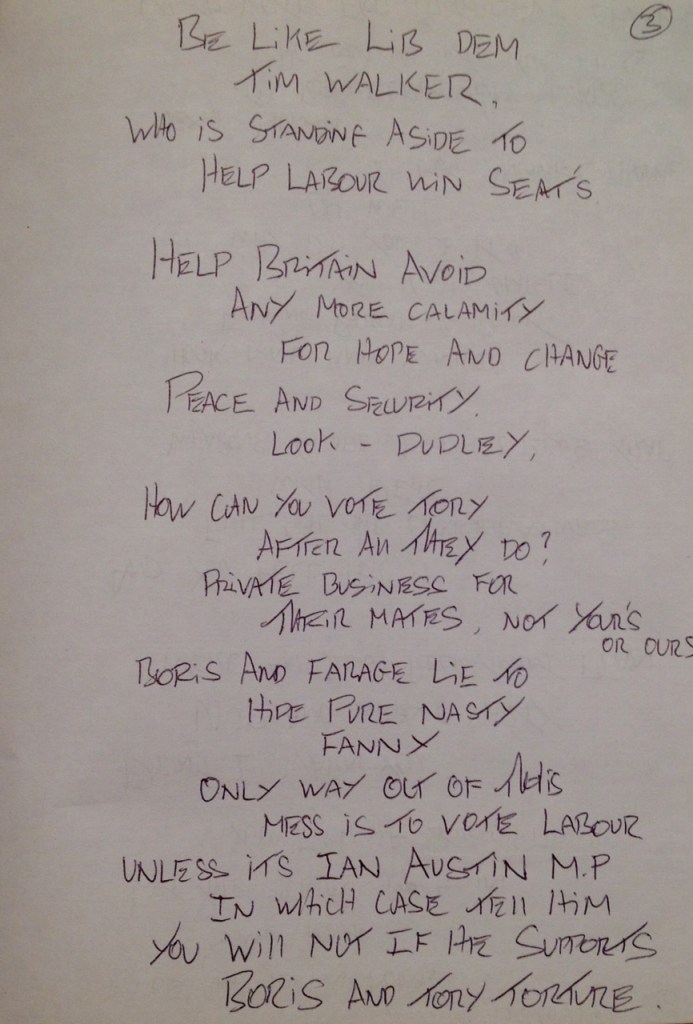 3
BE LIKE LIB DEM
TIM WALKER,
WHO IS STANDING ASIDE TO
HELP LABOUR WIN SEAT'S
HELP BRITAIN AVOID
ANY MORE CALAMITY
FOR HOPE AND CHANGE
PEACE AND SECURITY.
LOOK - DUDLEY,
HOW CAN YOU VOTE TORY
AFTER All THEY DO?
PRIVATE BUSINESS FOR
THEIR MATES, NOT YOUR'S
OR OURS
BORIS AND FARAGE LIE TO
HIDE PURE NASTY
FANNY
ONLY WAY OUT OF THIS
MESS IS TO VOTE LABOUR
UNLESS ITS IAN AUSTIN M.P
IN WHICH CASE TELL HIM
YOU WILL NOT IF HE SUPPORTS
BORIS AND TORY TORTURE.